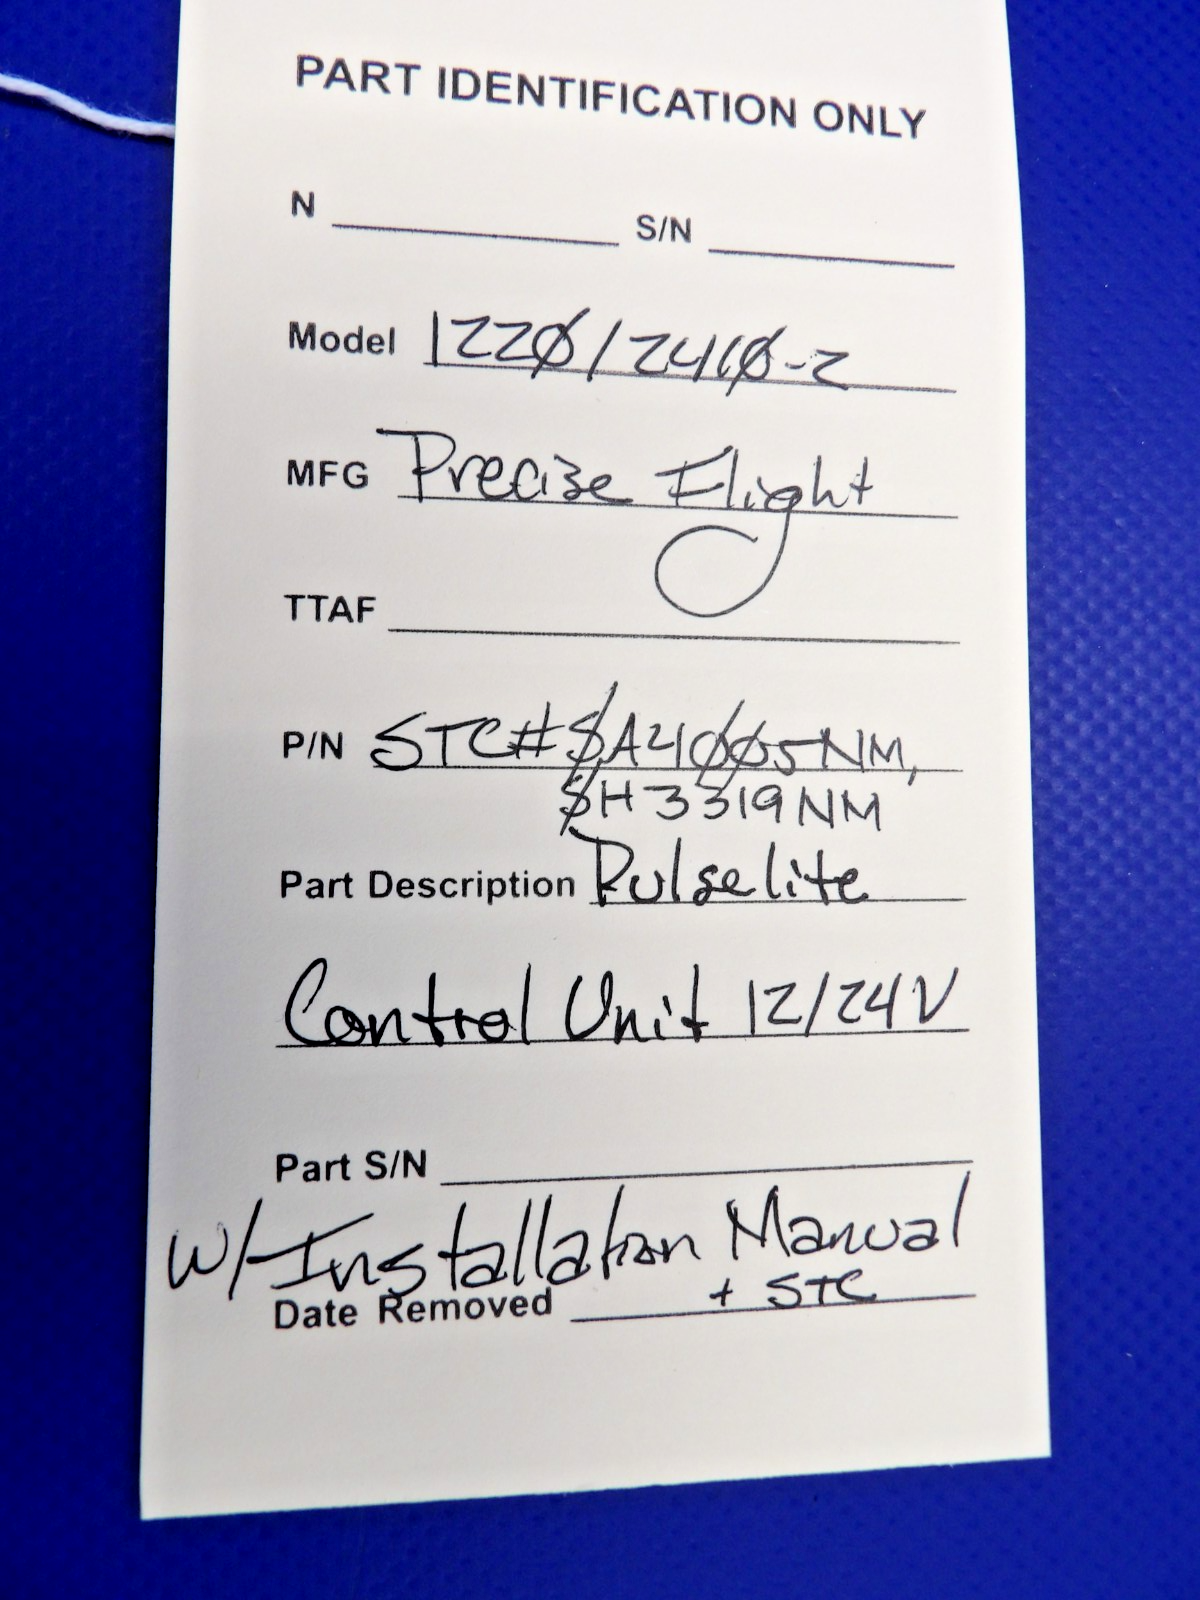 PART IDENTIFICATION ONLY
N S/N
Model 1220/2410-2
MFG Precise Flight
TTAF
P/N STC# SA4005NM,
SH3319NM
Part Description Pulselite
Control Unit 12/24V
Part S/N
W/Installation Manual
Date Removed + STC